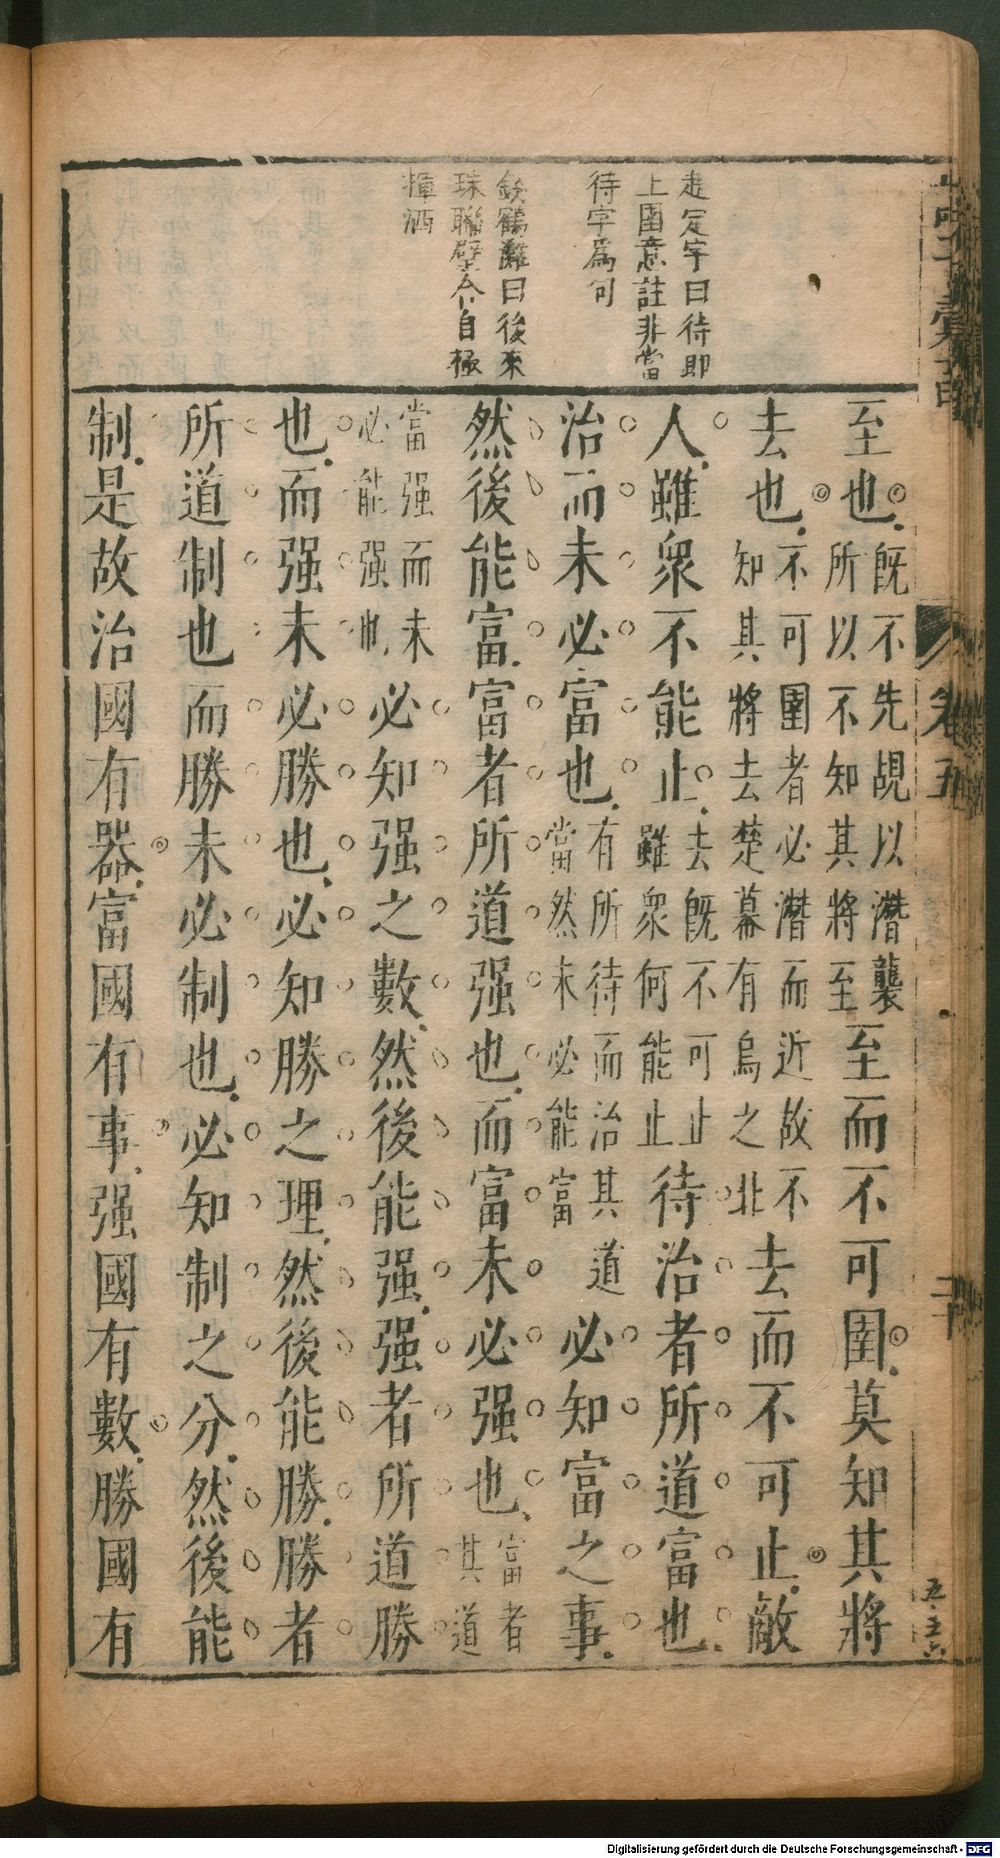 定宇曰待即
上圍意註非當
待字為句
錢鶴灘曰後來
珠聯璧合自極
揮洒
卷五
二十
至也既不先覘以潛襲所以不知其將至至而不可圍莫知其將
去也不可圍者必潛而近故不知其將去楚幕有烏之北去而不可止敵
人雖眾不能止去既不可止雖眾何能止待治者所道富也
治而未必富也有所待而治其道當然未必能富必知富之事
然後能富富者所道强也而富未必强也富者其道
當强而未必能强也必知强之數然後能强强者所道勝
也而强未必勝也必知勝之理然後能勝勝者
所道制也而勝未必制也必知制之分然後能
制是故治國有器富國有事强國有數勝國有
Digitalisierung gefördert durch die Deutsche Forschungsgemeinschaft - DFG